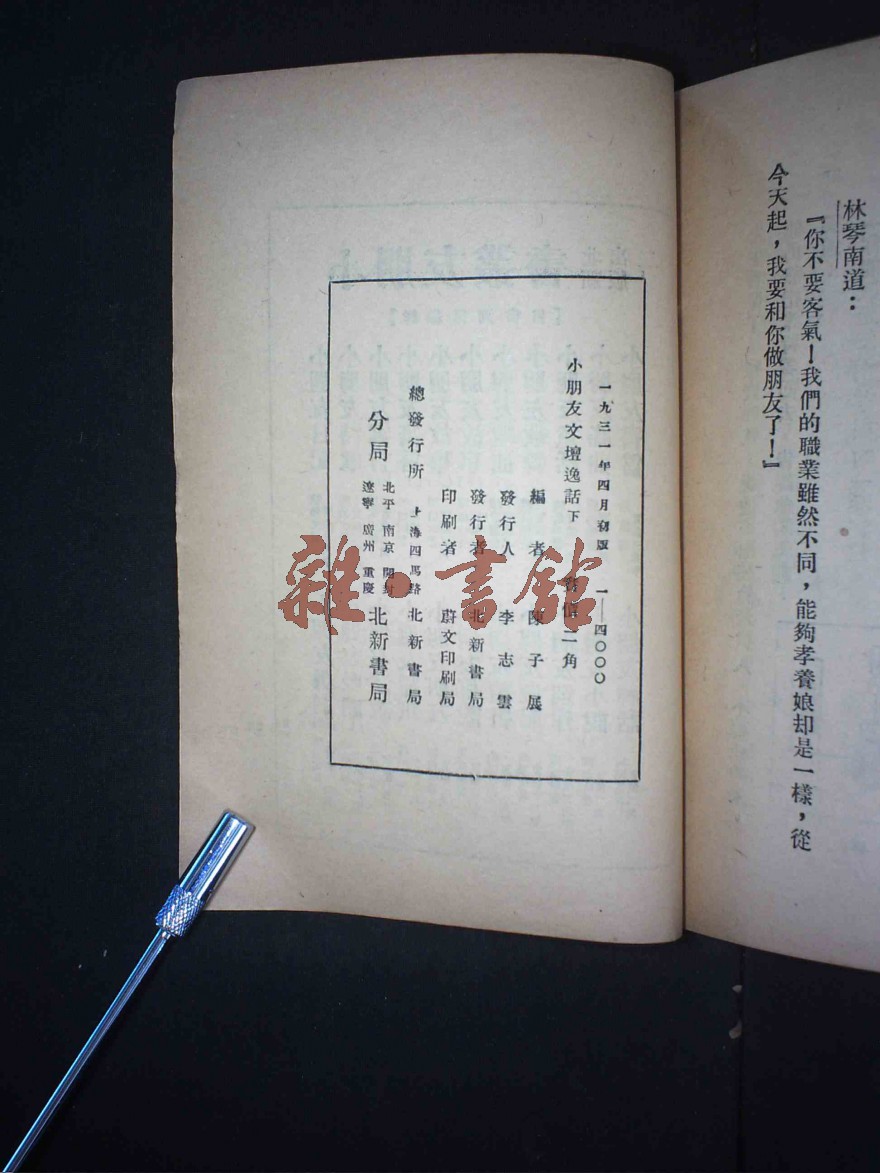 林琴南道：
『你不要客氣！我們的職業雖然不同，能夠孝養娘却是一樣，從
今天起，我要和你做朋友了！』
一九三一年四月初版　一—四〇〇〇
小朋友文壇逸話下　實價二角
編者　陳子展
發行人　李志雲
發行者　北新書局
印刷者　蔚文印刷局
總發行所　上海四馬路　北新書局
分局　北平　南京　開封
遼寧　廣州　重慶　北新書局
雜·書館